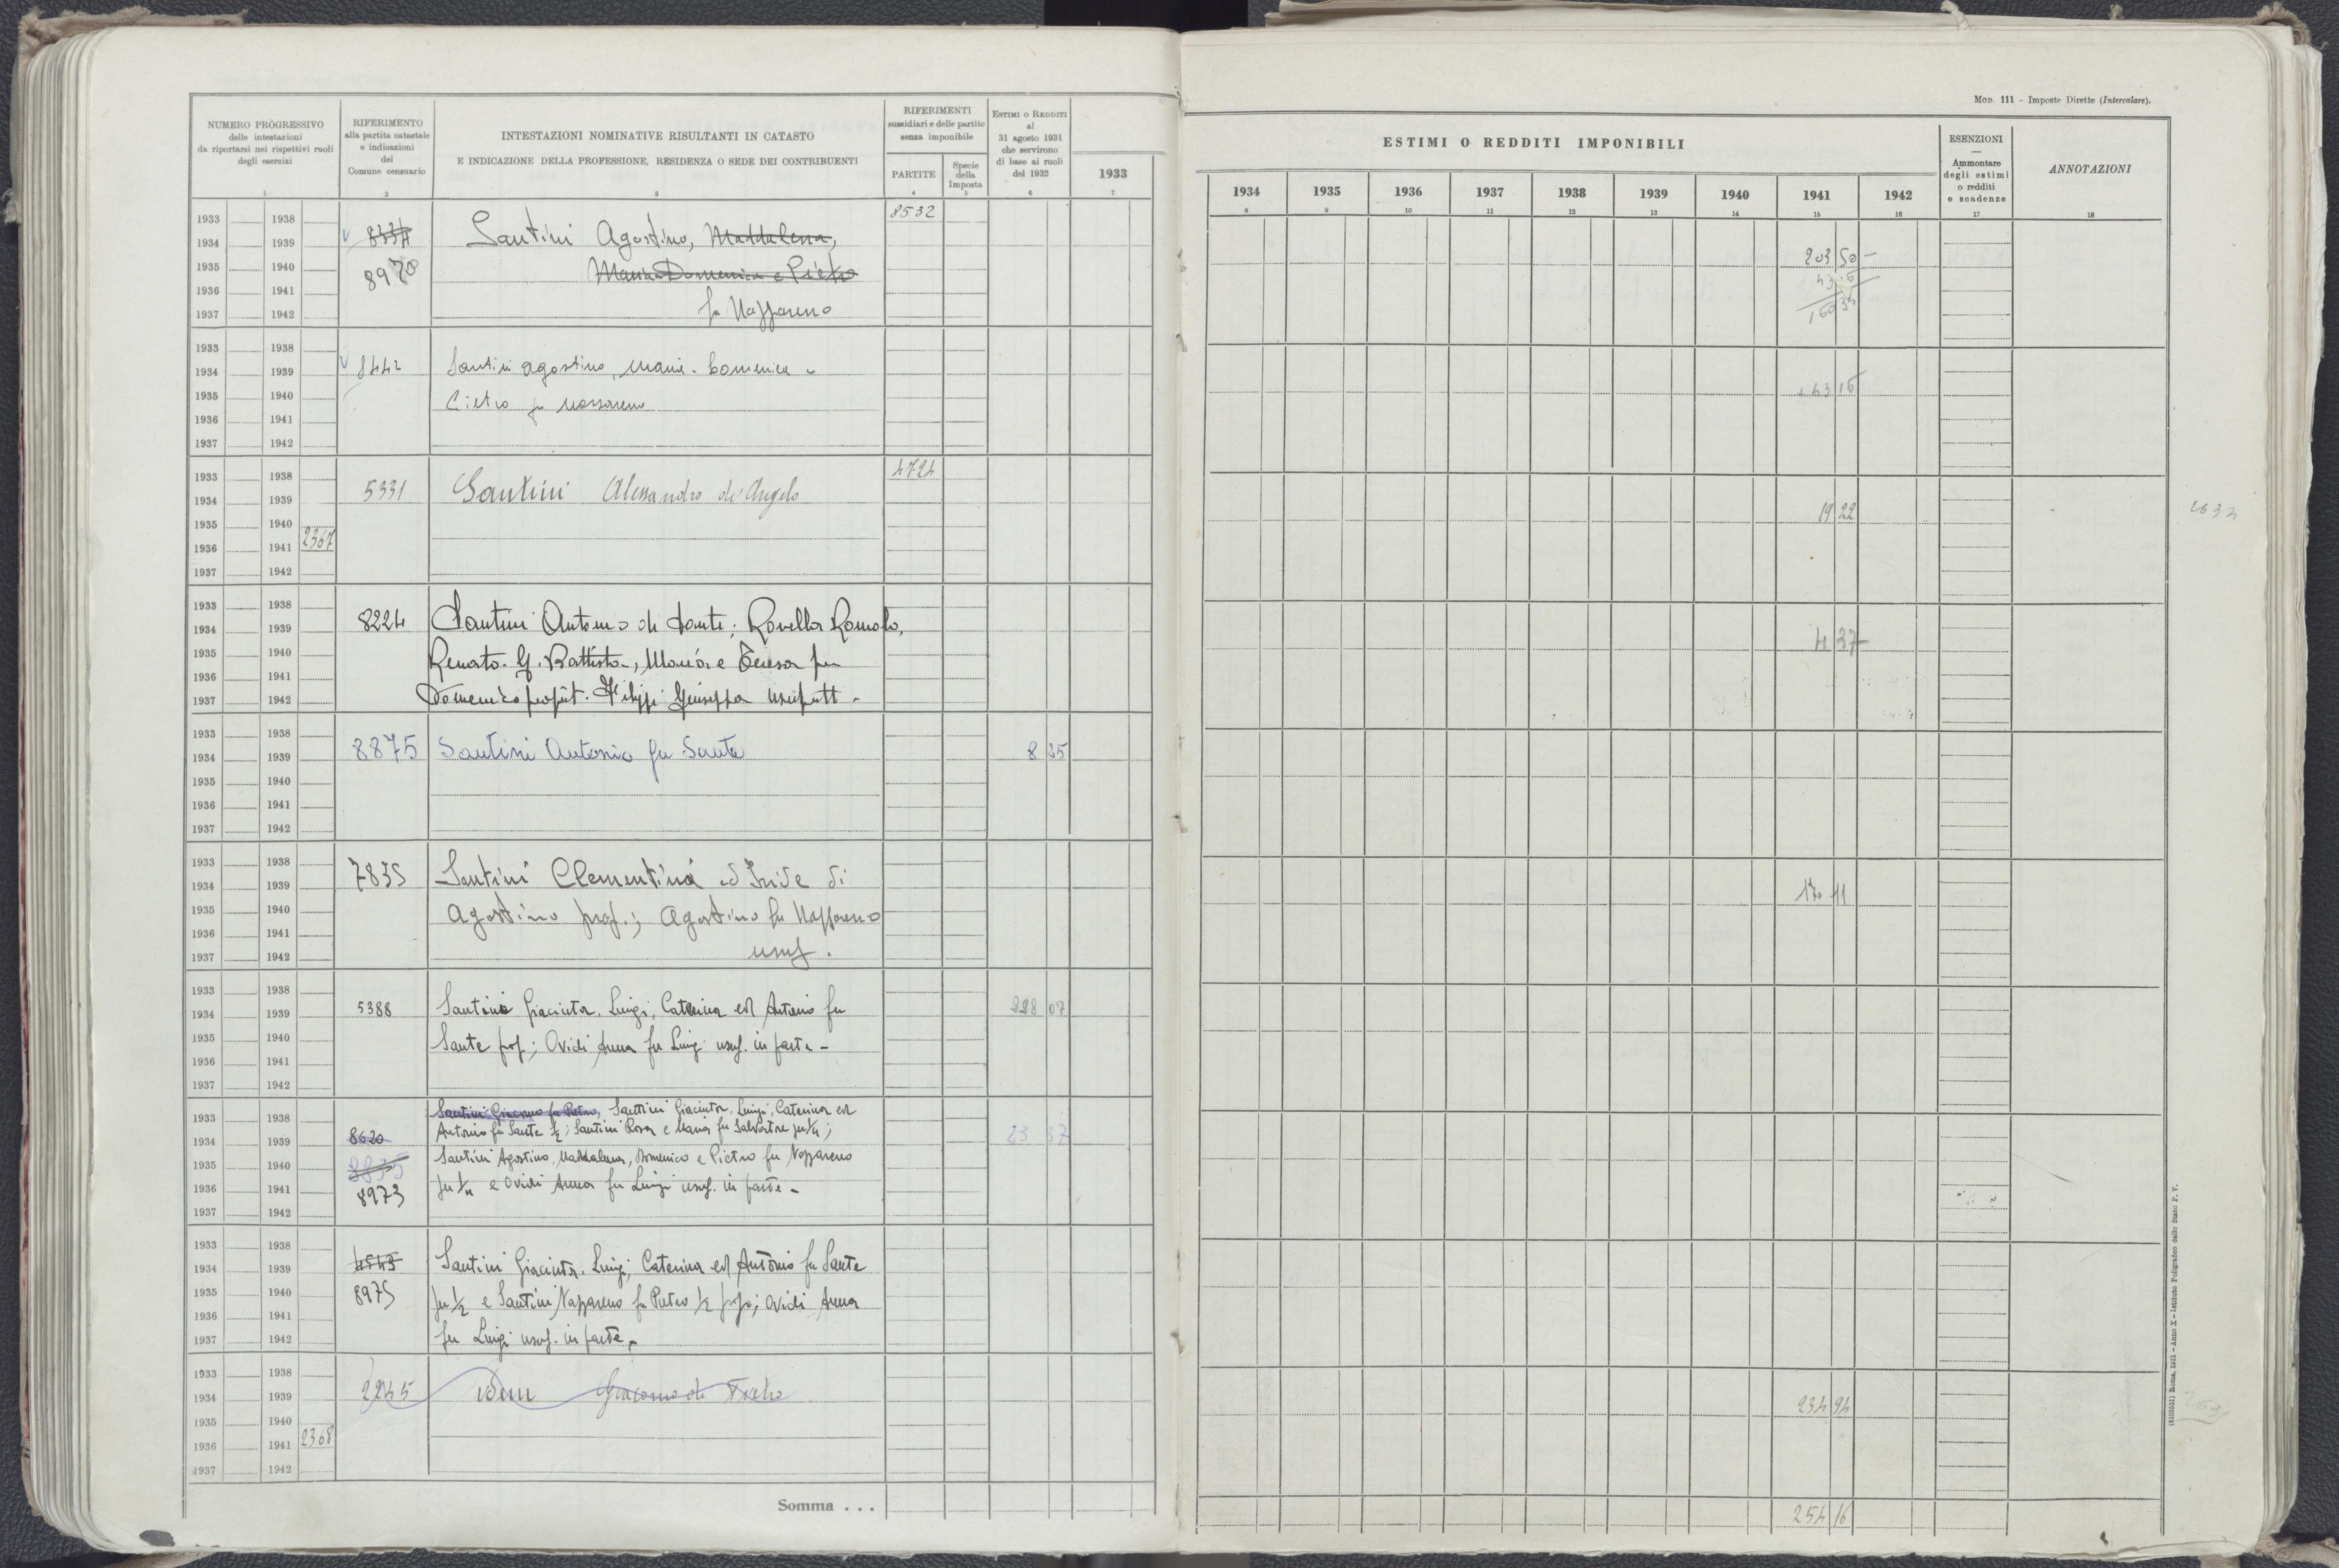 Mod. 111 - Imposte Dirette (Intercalare).
NUMERO PROGRESSIVO
delle intestazioni
da riportarsi nei rispettivi ruoli
degli esercizi
1
RIFERIMENTO
alla partita catastale
e indicazioni
del
Comune censuario
2
INTESTAZIONI NOMINATIVE RISULTANTI IN CATASTO
E INDICAZIONE DELLA PROFESSIONE, RESIDENZA O SEDE DEI CONTRIBUENTI
3
RIFERIMENTI
sussidiari e delle partite
senza imponibile
PARTITE
4
Specie
della
Imposta
5
ESTIMI O REDDITI
al
31 agosto 1931
che servirono
di base ai ruoli
del 1932
6
1933
7
ESTIMI O REDDITI IMPONIBILI
1934 1935 1936 1937 1938 1939 1940 1941 1942
8 9 10 11 12 13 14 15 16
ESENZIONI
—
Ammontare
degli estimi
o redditi
e scadenze
17
ANNOTAZIONI
18
1933 1938 8532
1934 1939 8334 Santini Agostino, Maddalena,
1935 1940 8970 Maria Domenica e Pietro 203 50 -
1936 1941 43 16
1937 1942 fu Nazzareno 160 34
1933 1938
1934 1939 8442 Santini Agostino, Maria-Domenica e
1935 1940 Pietro fu Nazzareno 43 16
1936 1941
1937 1942
1933 1938 4724
1934 1939 5331 Santini Alessandro di Angelo 19 22
1935 1940
1936 1941 2367
1937 1942
1933 1938
1934 1939 8224 Santini Antonio di Sante; Rovella Romolo, 4 37 -
1935 1940 Renato, G. Battista, Maria e Teresa fu
1936 1941
1937 1942 Domenico propriet. Filippi Giuseppa usufrutt.
1933 1938
1934 1939 8875 Santini Antonio fu Sante 8 25
1935 1940
1936 1941
1937 1942
1933 1938
1934 1939 7835 Santini Clementina ed Iride di 170 11
1935 1940 Agostino prop.; Agostino fu Nazzareno
1936 1941
1937 1942 usuf.
1933 1938
1934 1939 5388 Santini Giacinta, Luigi, Caterina ed Antonio fu 228 07
1935 1940 Sante prop.; Ovidi Anna fu Luigi usuf. in parte -
1936 1941
1937 1942
1933 1938 Santini Giacomo fu Pietro, Santini Giacinta, Luigi, Caterina ed
1934 1939 8620 Antonio fu Sante 1/2; Santini Rosa e Maria fu Salvatore per 1/4; 23 37
1935 1940 8835 Santini Agostino, Maddalena, Domenico e Pietro fu Nazzareno
1936 1941 8973 per 1/4 e Ovidi Anna fu Luigi usuf. in parte -
1937 1942
1933 1938
1934 1939 4543 Santini Giacinta, Luigi, Caterina ed Antonio fu Sante
1935 1940 8975 per 1/2 e Santini Nazzareno fu Pietro 1/2 prop.; Ovidi Anna
1936 1941
1937 1942 fu Luigi usuf. in parte -
1933 1938
1934 1939 2245 Idem Giacomo di Pietro 234 94
1935 1940
1936 1941 2368
1937 1942
Somma . . . 254 16
(4100531) Roma, 1931 - Anno X - Istituto Poligrafico dello Stato P. V.